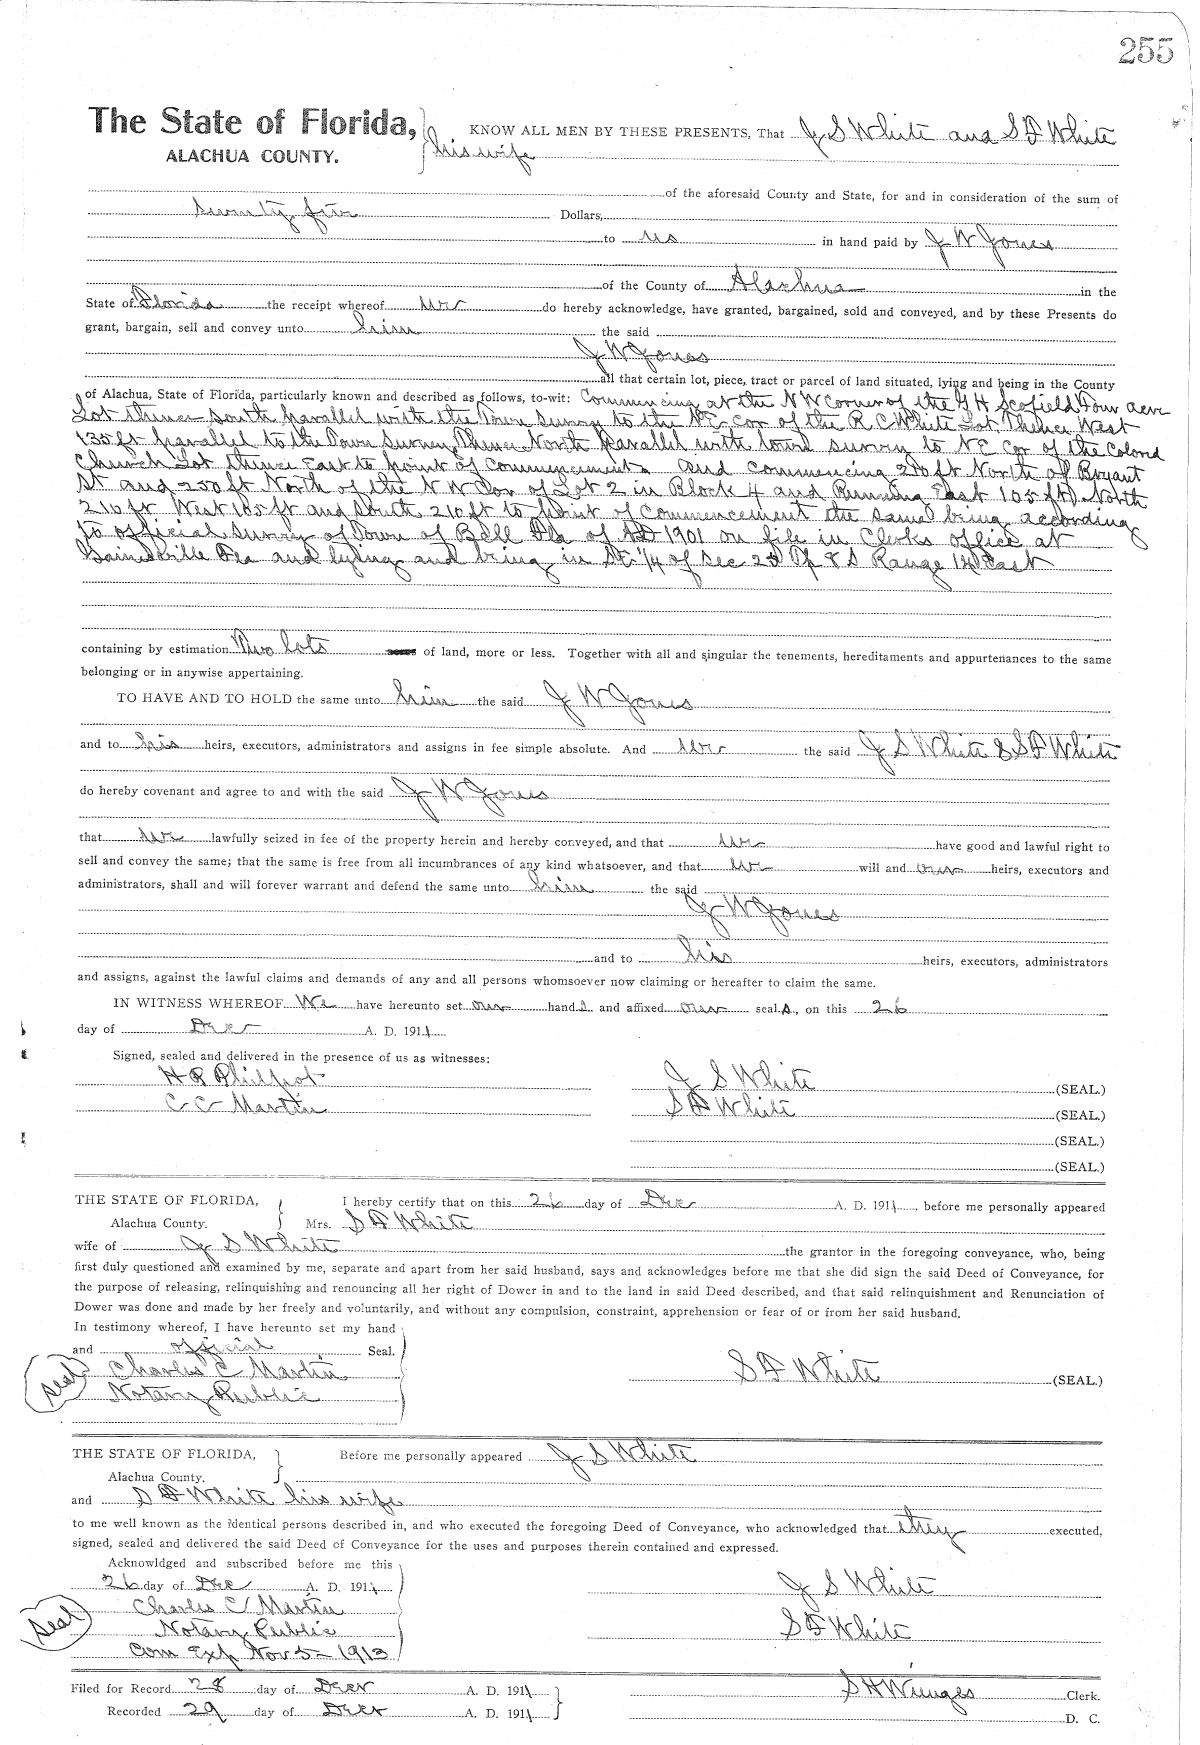 255
The State of Florida,
ALACHUA COUNTY.
KNOW ALL MEN BY THESE PRESENTS, That J S White and S F White
his wife
of the aforesaid County and State, for and in consideration of the sum of
Seventy five Dollars,
to us in hand paid by J W Jones
of the County of Alachua in the
State of Florida the receipt whereof we do hereby acknowledge, have granted, bargained, sold and conveyed, and by these Presents do
grant, bargain, sell and convey unto him the said
J W Jones
all that certain lot, piece, tract or parcel of land situated, lying and being in the County
of Alachua, State of Florida, particularly known and described as follows, to-wit: Commencing at the N W Corner of the G H Scofield Four acre
Lot thence south parallel with the Town survey to the N E Cor of the R C White Lot Thence West
135 ft parallel to the Town Survey Thence North parallel with town survey to N E Cor of the Colored
Church Lot thence East to point of commencement and commencing 250 ft North of Bryant
St and 250 ft North of the N W Cor of Lot 2 in Block 4 and Running East 105 ft North
210 ft West 105 ft and South 210 ft to point of commencement the same being according
to official survey of Town of Bell Fla of AD 1901 on file in Clerks office at
Gainesville Fla and lying and being in of Sec Tp 8 S Range East
containing by estimation Two lots of land, more or less. Together with all and singular the tenements, hereditaments and appurtenances to the same
belonging or in anywise appertaining.
TO HAVE AND TO HOLD the same unto him the said J W Jones
and to his heirs, executors, administrators and assigns in fee simple absolute. And we the said J S White & S F White
do hereby covenant and agree to and with the said J W Jones
that we lawfully seized in fee of the property herein and hereby conveyed, and that we have good and lawful right to
sell and convey the same; that the same is free from all incumbrances of any kind whatsoever, and that we will and our heirs, executors and
administrators, shall and will forever warrant and defend the same unto him the said
J W Jones
and to his heirs, executors, administrators
and assigns, against the lawful claims and demands of any and all persons whomsoever now claiming or hereafter to claim the same.
IN WITNESS WHEREOF We have hereunto set our hand s and affixed our seal s, on this 26
day of Dec A. D. 1911
Signed, sealed and delivered in the presence of us as witnesses:
H R Philpot J S White (SEAL.)
C C Martin S F White (SEAL.)
(SEAL.)
(SEAL.)
THE STATE OF FLORIDA, I hereby certify that on this 26 day of Dec A. D. 1911, before me personally appeared
Alachua County. Mrs. S F White
wife of J S White the grantor in the foregoing conveyance, who, being
first duly questioned and examined by me, separate and apart from her said husband, says and acknowledges before me that she did sign the said Deed of Conveyance, for
the purpose of releasing, relinquishing and renouncing all her right of Dower in and to the land in said Deed described, and that said relinquishment and Renunciation of
Dower was done and made by her freely and voluntarily, and without any compulsion, constraint, apprehension or fear of or from her said husband.
In testimony whereof, I have hereunto set my hand
and official Seal.
Seal Charles C Martin S F White (SEAL.)
Notary Public
THE STATE OF FLORIDA, Before me personally appeared J S White
Alachua County.
and S F White his wife
to me well known as the identical persons described in, and who executed the foregoing Deed of Conveyance, who acknowledged that they executed,
signed, sealed and delivered the said Deed of Conveyance for the uses and purposes therein contained and expressed.
Acknowldged and subscribed before me this
26 day of Dec A. D. 1911 J S White
Seal Charles C Martin
Notary Public S F White
Com Exp Nov 5 - 1913
Filed for Record 28 day of Decr A. D. 1911 S H Wienges Clerk.
Recorded 29 day of Decr A. D. 1911 D. C.